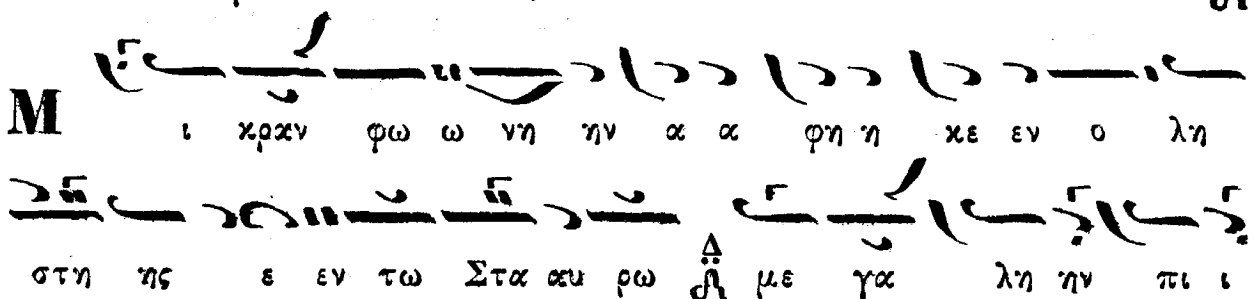 Μ ι κραν φω ω νη ην α α φη η κε εν ο λη
στη ης ε εν τω Στα αυ ρω Δ με γα λη ην πι ι